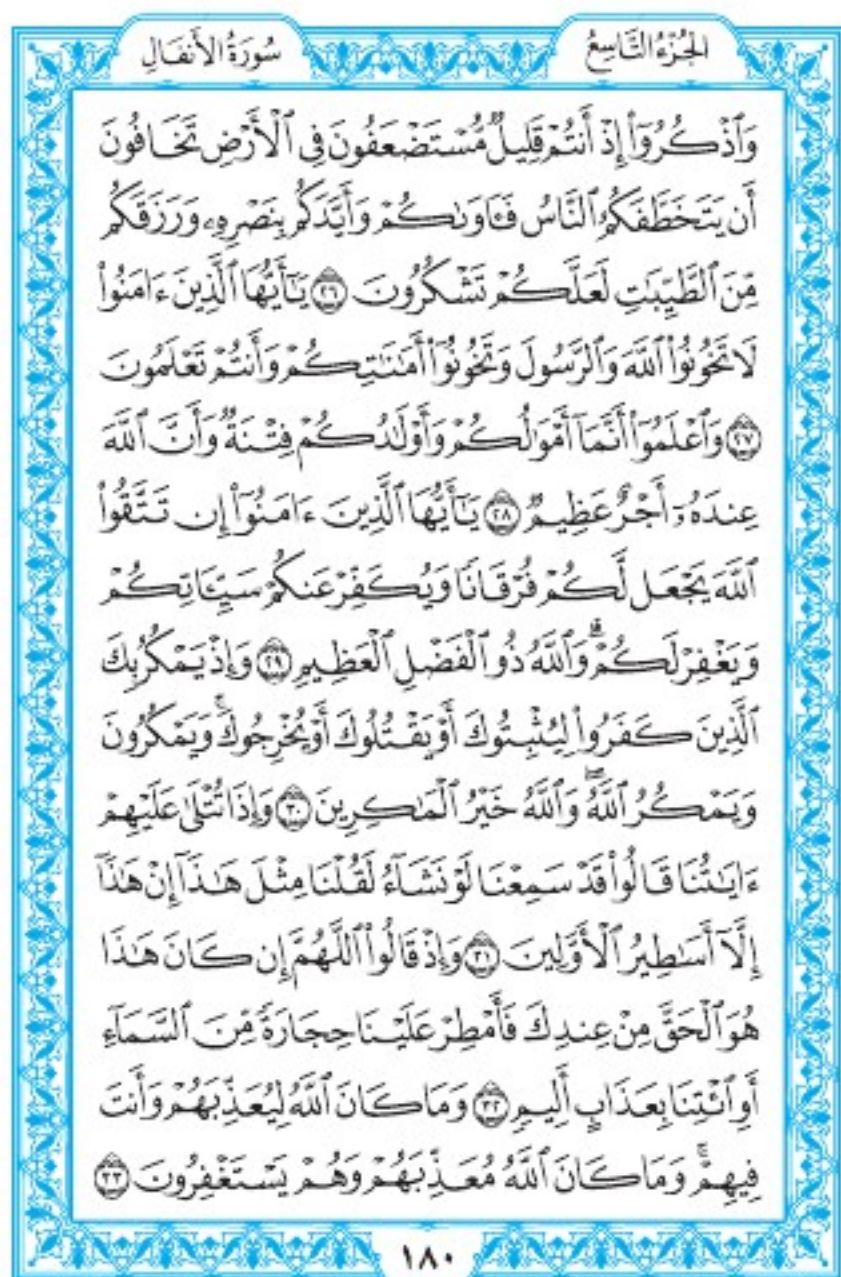 الجُزْءُ التَّاسِعُ
سُورَةُ الأَنفَالِ
وَٱذۡكُرُوٓاْ إِذۡ أَنتُمۡ قَلِيلٞ مُّسۡتَضۡعَفُونَ فِي ٱلۡأَرۡضِ تَخَافُونَ
أَن يَتَخَطَّفَكُمُ ٱلنَّاسُ فَـَٔاوَىٰكُمۡ وَأَيَّدَكُم بِنَصۡرِهِۦ وَرَزَقَكُم
مِّنَ ٱلطَّيِّبَٰتِ لَعَلَّكُمۡ تَشۡكُرُونَ ٢٦ يَٰٓأَيُّهَا ٱلَّذِينَ ءَامَنُواْ
لَا تَخُونُواْ ٱللَّهَ وَٱلرَّسُولَ وَتَخُونُوٓاْ أَمَٰنَٰتِكُمۡ وَأَنتُمۡ تَعۡلَمُونَ
٢٧ وَٱعۡلَمُوٓاْ أَنَّمَآ أَمۡوَٰلُكُمۡ وَأَوۡلَٰدُكُمۡ فِتۡنَةٞ وَأَنَّ ٱللَّهَ
عِندَهُۥٓ أَجۡرٌ عَظِيمٞ ٢٨ يَٰٓأَيُّهَا ٱلَّذِينَ ءَامَنُوٓاْ إِن تَتَّقُواْ
ٱللَّهَ يَجۡعَل لَّكُمۡ فُرۡقَانٗا وَيُكَفِّرۡ عَنكُمۡ سَيِّـَٔاتِكُمۡ
وَيَغۡفِرۡ لَكُمۡۗ وَٱللَّهُ ذُو ٱلۡفَضۡلِ ٱلۡعَظِيمِ ٢٩ وَإِذۡ يَمۡكُرُ بِكَ
ٱلَّذِينَ كَفَرُواْ لِيُثۡبِتُوكَ أَوۡ يَقۡتُلُوكَ أَوۡ يُخۡرِجُوكَۚ وَيَمۡكُرُونَ
وَيَمۡكُرُ ٱللَّهُۖ وَٱللَّهُ خَيۡرُ ٱلۡمَٰكِرِينَ ٣٠ وَإِذَا تُتۡلَىٰ عَلَيۡهِمۡ
ءَايَٰتُنَا قَالُواْ قَدۡ سَمِعۡنَا لَوۡ نَشَآءُ لَقُلۡنَا مِثۡلَ هَٰذَآ إِنۡ هَٰذَآ
إِلَّآ أَسَٰطِيرُ ٱلۡأَوَّلِينَ ٣١ وَإِذۡ قَالُواْ ٱللَّهُمَّ إِن كَانَ هَٰذَا
هُوَ ٱلۡحَقَّ مِنۡ عِندِكَ فَأَمۡطِرۡ عَلَيۡنَا حِجَارَةٗ مِّنَ ٱلسَّمَآءِ
أَوِ ٱئۡتِنَا بِعَذَابٍ أَلِيمٖ ٣٢ وَمَا كَانَ ٱللَّهُ لِيُعَذِّبَهُمۡ وَأَنتَ
فِيهِمۡۚ وَمَا كَانَ ٱللَّهُ مُعَذِّبَهُمۡ وَهُمۡ يَسۡتَغۡفِرُونَ ٣٣
١٨٠